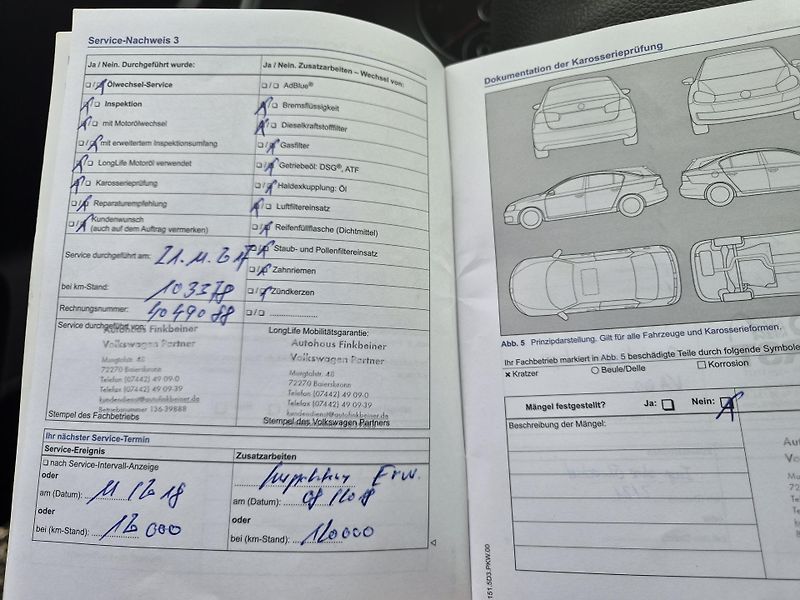 Service-Nachweis 3
Ja / Nein. Durchgeführt wurde:
Ölwechsel-Service
Inspektion
mit Motorölwechsel
mit erweitertem Inspektionsumfang
LongLife Motoröl verwendet
Karosserieprüfung
Reparaturempfehlung
Kundenwunsch
(auch auf dem Auftrag vermerken)
Service durchgeführt am:
bei km-Stand: 103378
Rechnungsnummer: 4049088
Service durchgeführt von:
Autohaus Finkbeiner
Volkswagen Partner
Murgtalstr. 48
72270 Baiersbronn
Telefon (07442) 49 09-0
Telefax (07442) 49 09-39
kundendienst@autofinkbeiner.de
Betriebsnummer 136-39888
Stempel des Fachbetriebs
Ja / Nein. Zusatzarbeiten – Wechsel von:
AdBlue®
Bremsflüssigkeit
Dieselkraftstofffilter
Gasfilter
Getriebeöl: DSG®, ATF
Haldexkupplung: Öl
Luftfiltereinsatz
Reifenfüllflasche (Dichtmittel)
Staub- und Pollenfiltereinsatz
Zahnriemen
Zündkerzen
LongLife Mobilitätsgarantie:
Autohaus Finkbeiner
Volkswagen Partner
Murgtalstr. 48
72270 Baiersbronn
Telefon (07442) 49 09-0
Telefax (07442) 49 09-39
kundendienst@autofinkbeiner.de
Stempel des Volkswagen Partners
Ihr nächster Service-Termin
Service-Ereignis
nach Service-Intervall-Anzeige
oder
am (Datum):
oder
bei (km-Stand):
Zusatzarbeiten
Inspektion Erw.
am (Datum):
oder
bei (km-Stand): 120000
Dokumentation der Karosserieprüfung
Abb. 5 Prinzipdarstellung. Gilt für alle Fahrzeuge und Karosserieformen.
Ihr Fachbetrieb markiert in Abb. 5 beschädigte Teile durch folgende Symbole
Kratzer
Beule/Delle
Korrosion
Mängel festgestellt? Ja: Nein:
Beschreibung der Mängel:
151.5D3.PKW.00